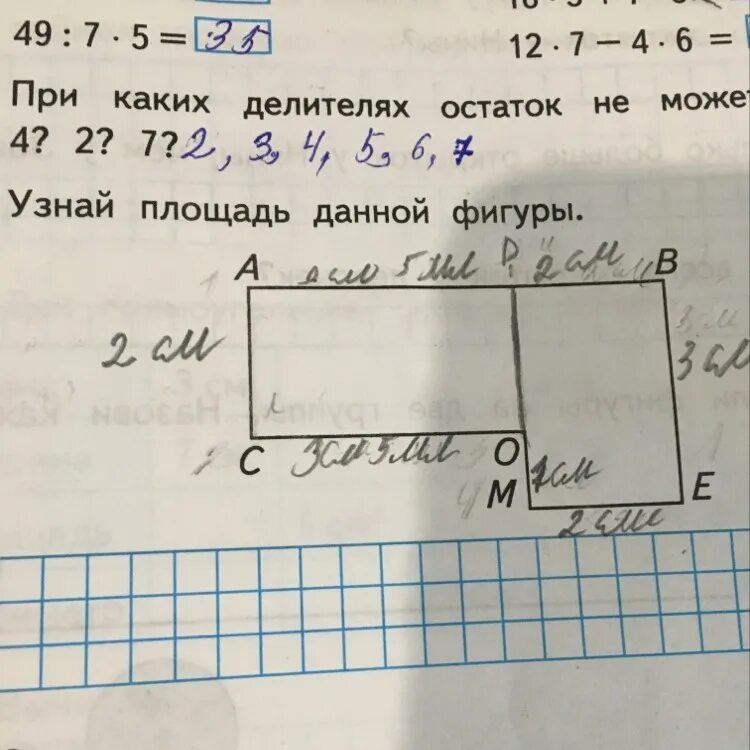 49 : 7 · 5 = 35
12 · 7 − 4 · 6 =
При каких делителях остаток не може
4? 2? 7? 2, 3, 4, 5, 6, 7
Узнай площадь данной фигуры.
A 5 мм D 2 см B
2 см
3 см
C 3 см 5 мм O
M 1 см E
2 см